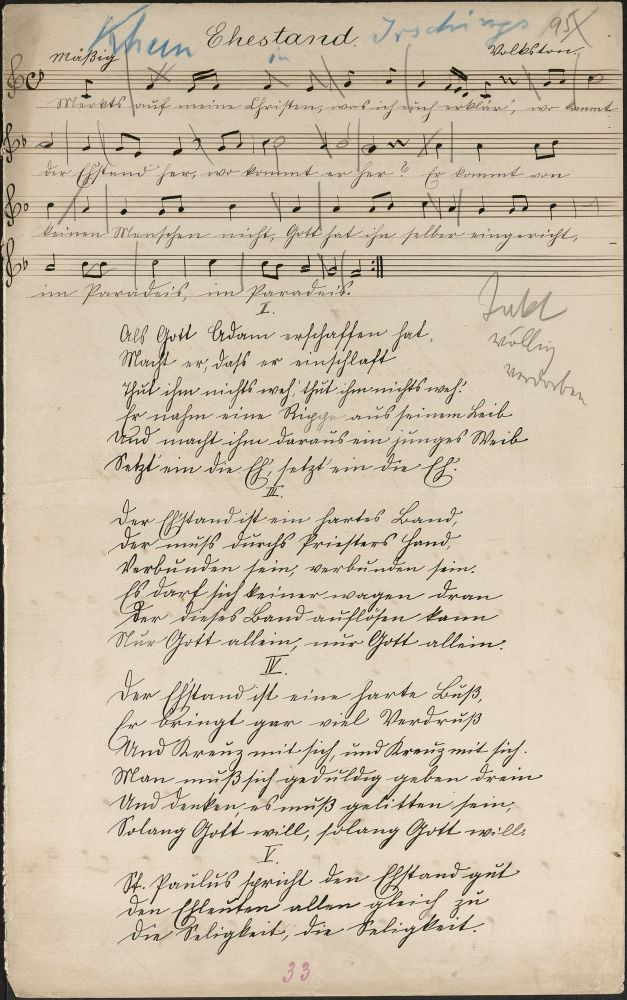 Ehestand.
in
95
Mäßig
Volkston.
Merkts auf meine Christen, was ich euch erklär', wo kommt
der Ehstand her, wo kommt er her? Er kommt von
keinen Menschen nicht, Gott hat ihn selber eingericht,
im Paradeis, im Paradeis.
II.
Als Gott Adam erschaffen hat,
Macht er, daß er einschlaft
Thut ihm nichts weh', thut ihm nichts weh'.
Er nahm eine Rippe aus seinem Leib
Und macht ihm daraus ein junges Weib
Setzt ein die Eh', setzt ein die Eh'.
III.
Der Ehstand ist ein hartes Band,
Der muß durchs Priesters Hand,
Verbunden sein, verbunden sein.
Es darf sich keiner wagen dran
Der dieses Band auflösen kann
Nur Gott allein, nur Gott allein.
IV.
Der Ehstand ist eine harte Buß,
Er bringt gar viel Verdruß
Und Kreuz mit sich, und Kreuz mit sich.
Man muß sich geduldig geben drein
Und denken es muß gelitten sein,
Solang Gott will, solang Gott will.
V.
St. Paulus spricht den Ehstand gut
Den Ehleuten allen gleich zu
Die Seligkeit, die Seligkeit.
völlig
verdorben
33